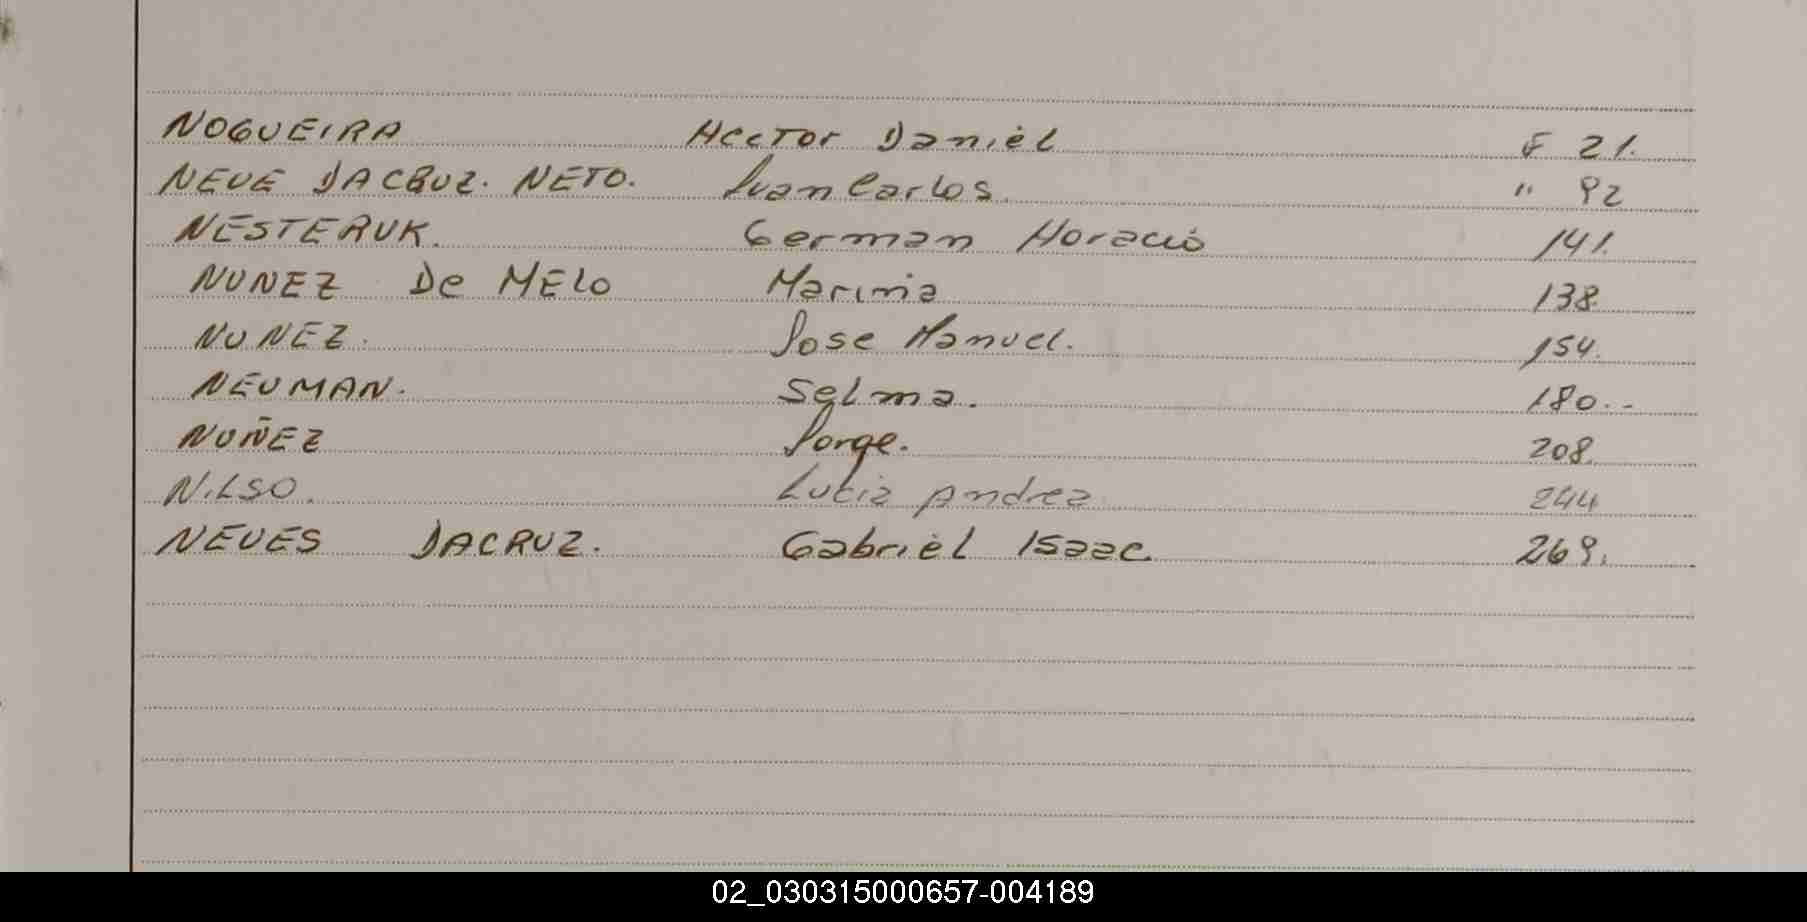 NOGUEIRA Hector Daniel F 21.
NEVE DACRUZ. NETO. Juan Carlos. " 92
NESTERUK. German Horacio 141.
NUNEZ De MELO Marina 138.
NUNEZ. Jose Manuel. 154.
NEUMAN. Selma. 180.-
NUÑEZ Jorge. 208.
NILSO. Lucia Andrea 244
NEVES DACRUZ. Gabriel Isaac. 269.
02_030315000657-004189